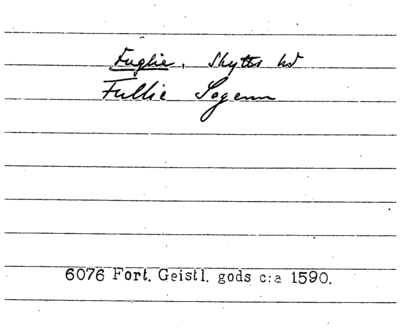 Fuglie, Skytts hd
Fullie Sogenn
6076 Fort. Geistl. gods c:a 1590.